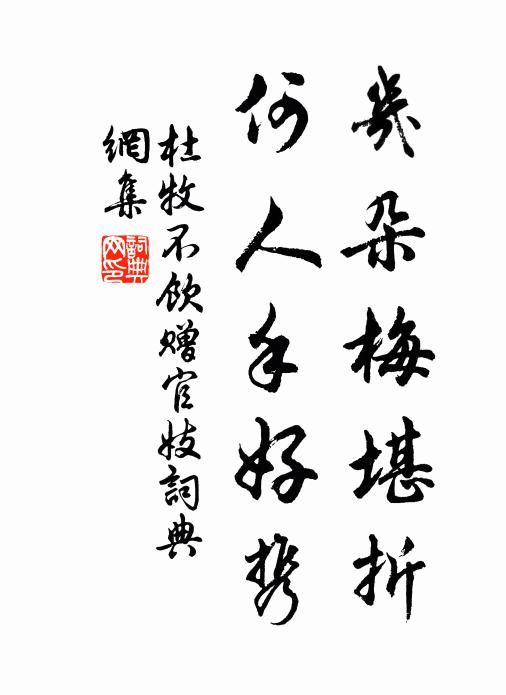 幾朵梅堪折
何人手好携
杜牧不飲贈官妓詞典
網集
詞典網印